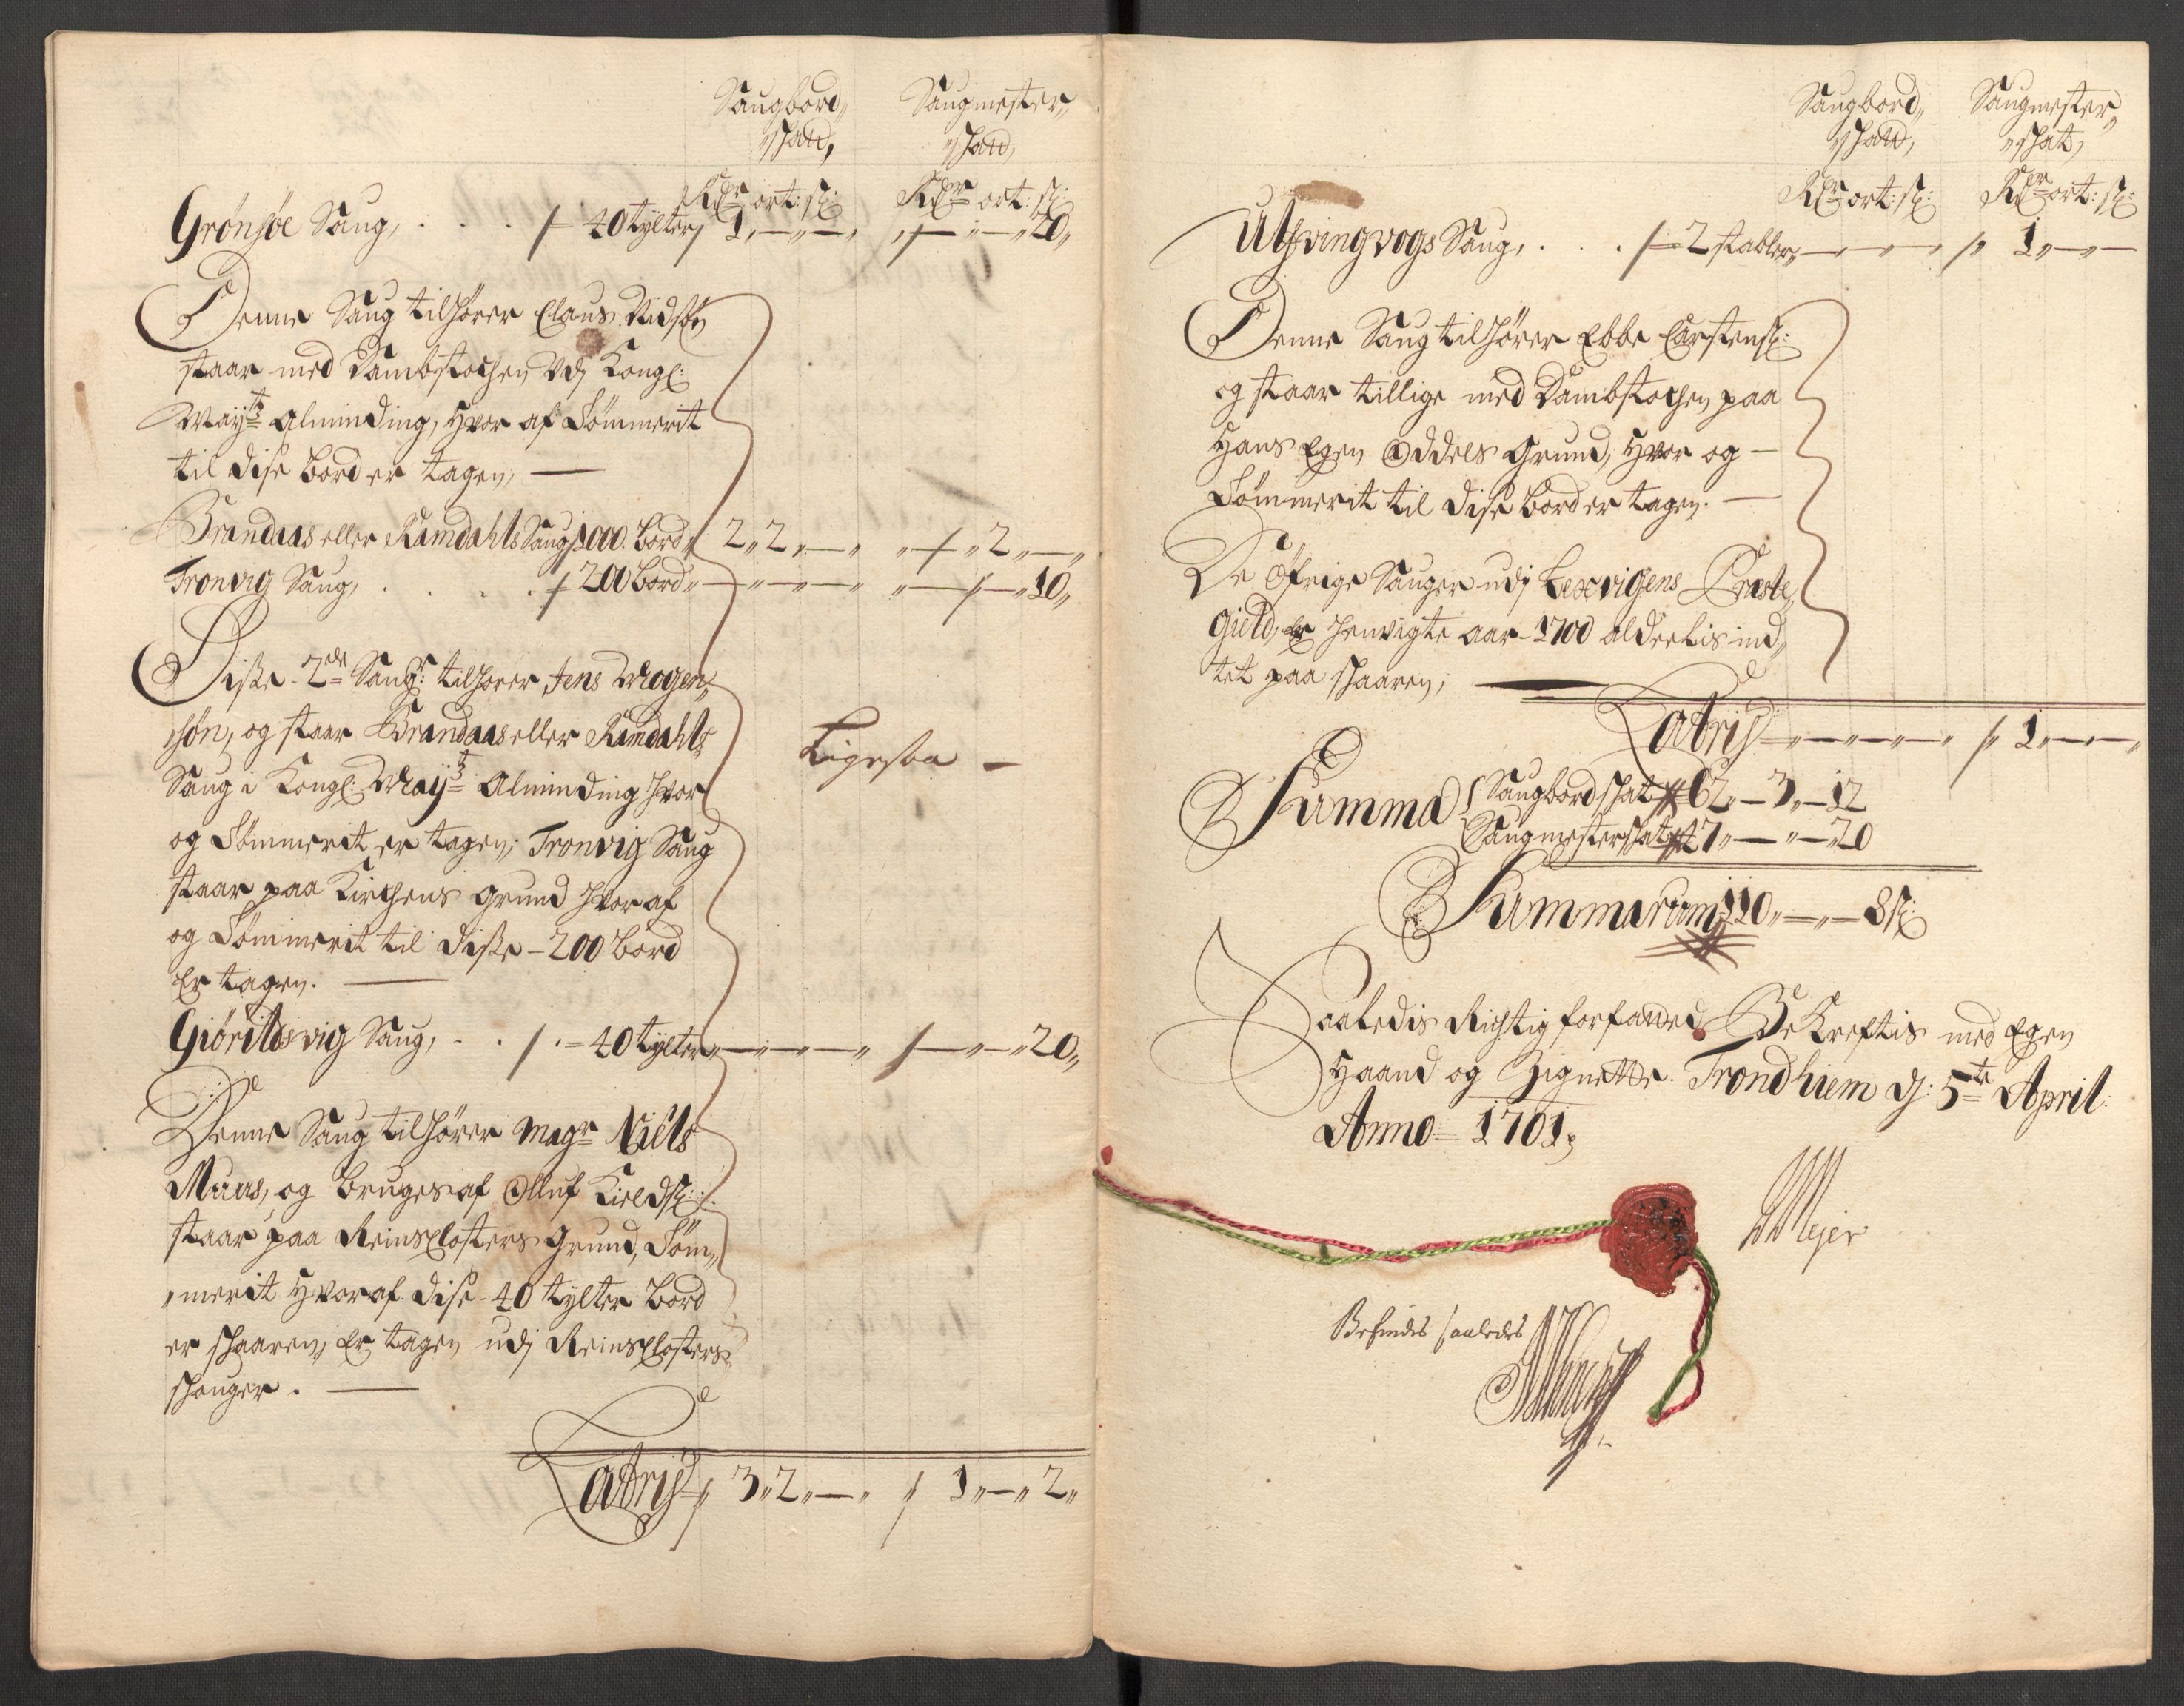 Saugbord„ Saugmester„
„skatt, „skatt,
Rdr ort: sk: Rdr ort: sk:
Grönsöe Saug, . . . 40 tylter, 1„—„—„ „—„—„20„
Denne Saug tilhörer Claus Nidsön
staar med Dambstochen Udj Kongl:
Maytz Alminding, hvor af Tömmerit
til dise bord er tagen, —
Brandaas eller Ramdahls Saug 1000. bord„ 2„2„—„ „—„2„—„
Tronvig Saug, . . . . 200 bord„—„—„—„ „—„—„10„
Diße 2de Saug: tilhører Jens Mogen„
„søn, og staar Brandaas eller Ramdahls
Saug i Kongl: Maytz Alminding hvor
og Tömmerit er tagen; Tronvig Saug
staar paa Kirchens grund hvor af
og Tömmerit til diße - 200 bord
er tagen. —
Ligesaa —
Giörildsvig Saug, . . 40 tylter„—„—„—„ —„—„20„
Denne Saug tilhörer Magr Niels
Muus, og bruges af Olluf Kieldsk:
staar paa Reinsclosters grund, Töm„
„merit hvoraf dise - 40 tylter bord
er skaaren, er tagen udj Reinsclosters
skouger. —
Latris 3„2„—„ 1„—„2„
Saugbord„ Saugmester„
„skatt, „skat,
Rdr ort: sk: Rdr ort: sk:
Uthvingvogs Saug, . . . 2 stabler„—„—„—„ 1„—„—
Denne Saug tilhörer Ebbe Carstensk:
og staar tillige med Dambstochen paa
hans egen Oddels grund, hvor og —
Tömmerit til dise bord er tagen. —
De Öfrige Sauger udj Lexvigens Præste„
Gield, er henvigte aar 1700 alderlis ind„
tet paa skaaren; —
Latris „—„—„—„ 1„—„—„
Summa Saugbordskat 62„—3„—12
Saugmesterskat 47„—„—20
Summarum 110„—„—8 sk:
Saaledis Rigtig forfattet Bekreftis med egen
Haand og Zignette. Trondhiem dj: 5te April
Anno 1701;
Mejer
Befindes saaledes